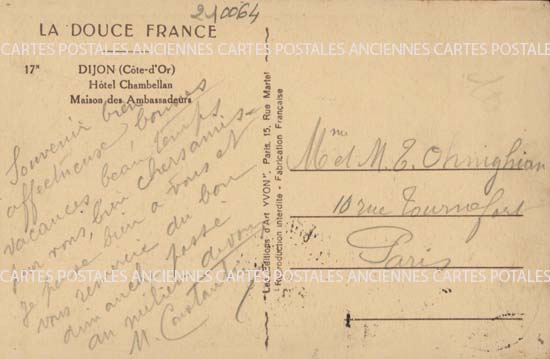 210064
LA DOUCE FRANCE
CARTES POSTALES ANCIENNES CARTES POSTALES ANCIENNES CARTES POSTALES
17" DIJON (Côte-d'Or)
Hôtel Chambellan
Maison des Ambassadeurs
Souvenir bien
affectueuse, bonnes
vacances beau temps
pour vous, bien chers amis
je pense bien à vous et
vous remercie du bon
dimanche passé
au milieu de vous
M. Constantin
"Les Editions d'Art YVON", Paris, 15, Rue Martel
Reproduction interdite - Fabrication Française
Mme et M. E.
10 rue Tournefort
Paris
CARTES POSTALES ANCIENNES CARTES POSTALES ANCIENNES CARTES POSTALES